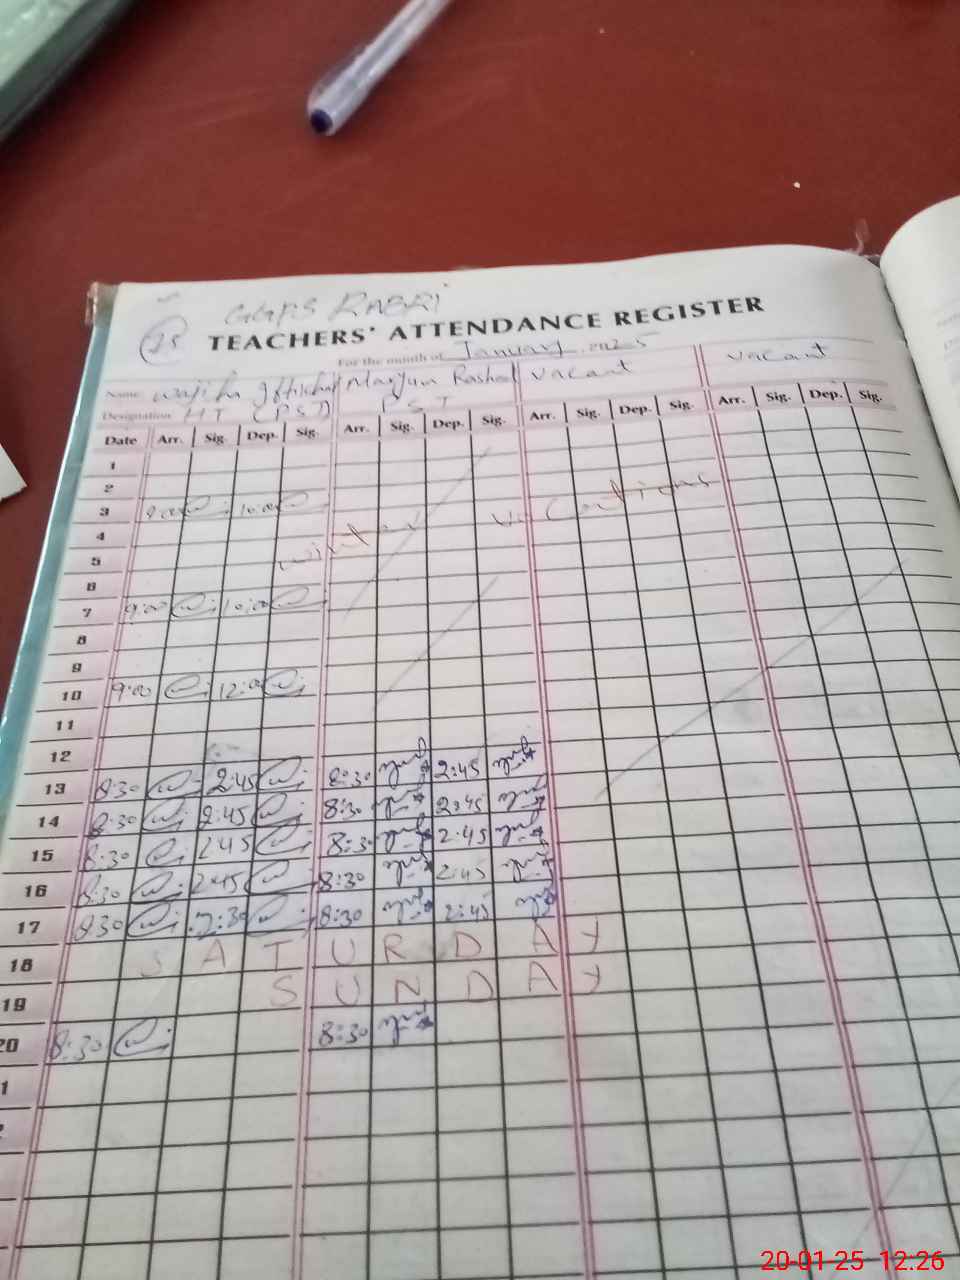 GGPS RABRI
25
TEACHERS' ATTENDANCE REGISTER
For the month of January 2025
Name Wajiha Iftikhar Maryum Rashed Vacant Vacant
Designation HT (PST) PST
Date Arr. Sig. Dep. Sig. Arr. Sig. Dep. Sig. Arr. Sig. Dep. Sig. Arr. Sig. Dep. Sig.
1
2
3 9:00 10:00
4 winter vacations
5
6
7 9:00 10:00
8
9
10 9:00 12:00
11
12
13 8:30 2:45 8:30 2:45
14 8:30 2:45 8:30 2:45
15 8:30 2:45 8:30 2:45
16 8:30 2:45 8:30 2:45
17 8:30 2:30 8:30 2:45
18 SATURDAY
19 SUNDAY
20 8:30 8:30
1
2
20-01-25 12:26